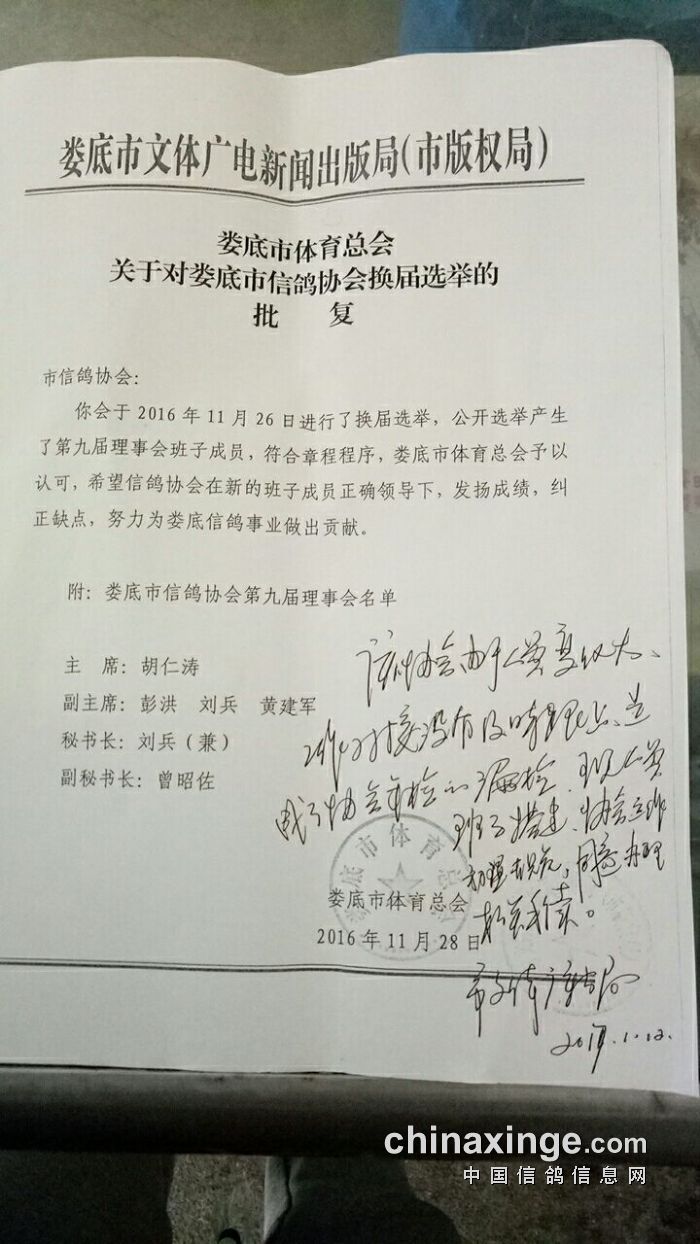 娄底市文体广电新闻出版局(市版权局)
娄底市体育总会
关于对娄底市信鸽协会换届选举的
批 复
市信鸽协会：
你会于 2016 年 11 月 26 日进行了换届选举，公开选举产生
了第九届理事会班子成员，符合章程程序，娄底市体育总会予以
认可，希望信鸽协会在新的班子成员正确领导下，发扬成绩，纠
正缺点，努力为娄底信鸽事业做出贡献。
附：娄底市信鸽协会第九届理事会名单
主 席：胡仁涛
副主席：彭洪 刘兵 黄建军
秘书长：刘兵（兼）
副秘书长：曾昭佐
该协会由于人员变化大、
工作对接没有及时
协会年检的漏检
班子搭建 协会工作
同意办理
娄底市体育总会
2016 年 11 月 28 日
市文体广电局
2017.1.12.
chinaxinge.com
中国信鸽信息网